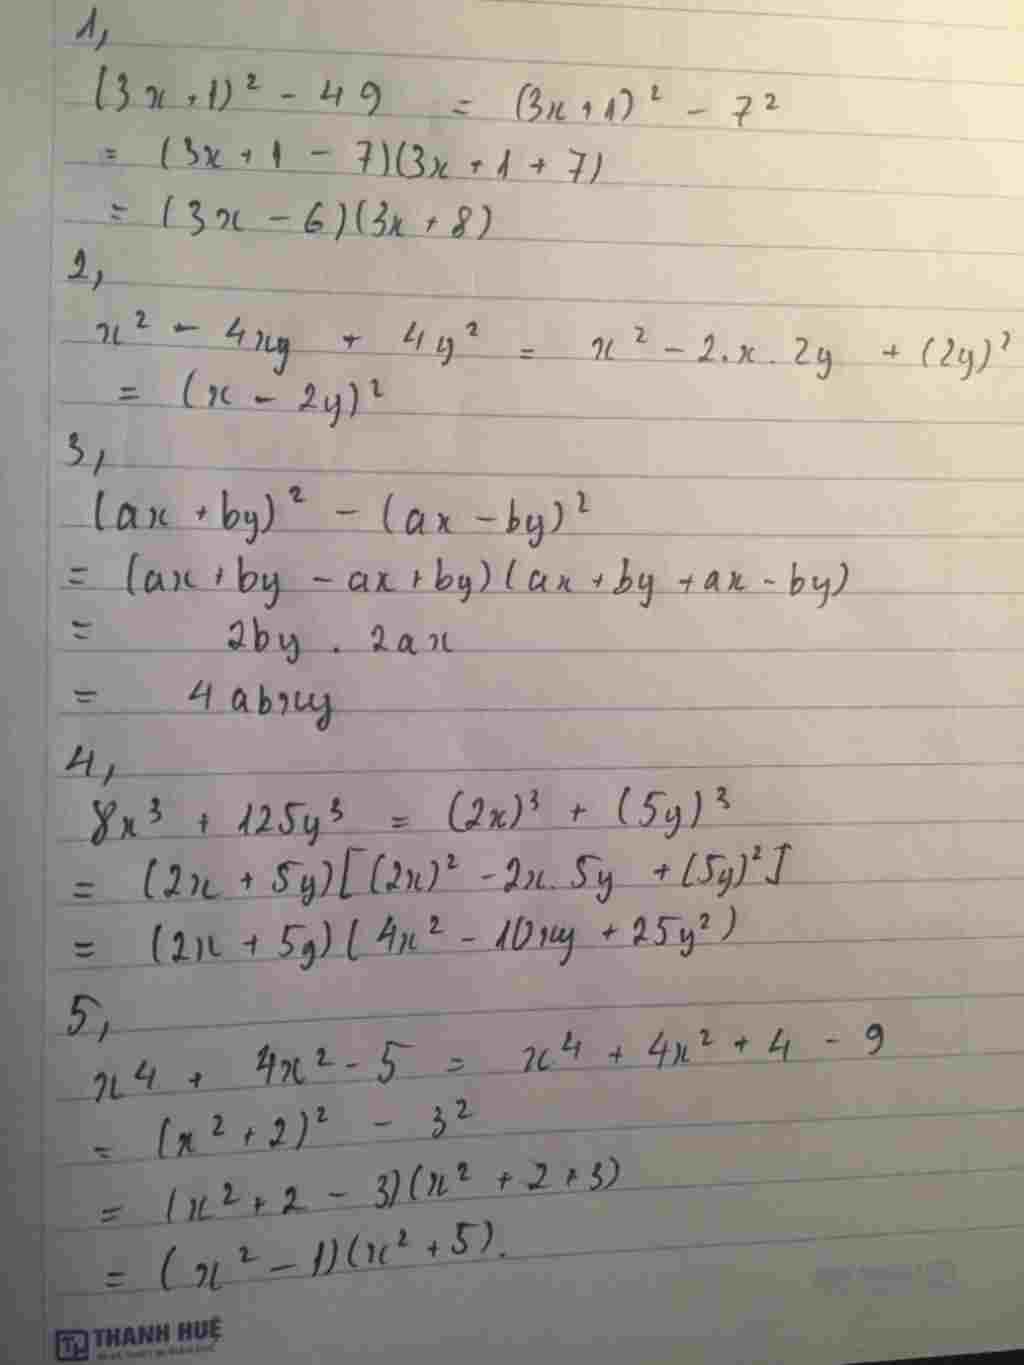 1,
(3x+1)² - 49 = (3x+1)² - 7²
= (3x+1-7)(3x+1+7)
= (3x-6)(3x+8)
2,
x² - 4xy + 4y² = x² - 2.x.2y + (2y)²
= (x - 2y)²
3,
(ax + by)² - (ax - by)²
= (ax+by - ax+by)(ax+by+ax-by)
= 2by . 2ax
= 4abxy
4,
8x³ + 125y³ = (2x)³ + (5y)³
= (2x + 5y)[(2x)² - 2x.5y + (5y)²]
= (2x + 5y)(4x² - 10xy + 25y²)
5,
x⁴ + 4x² - 5 = x⁴ + 4x² + 4 - 9
= (x²+2)² - 3²
= (x²+2-3)(x²+2+3)
= (x²-1)(x²+5).
THANH HUỆ